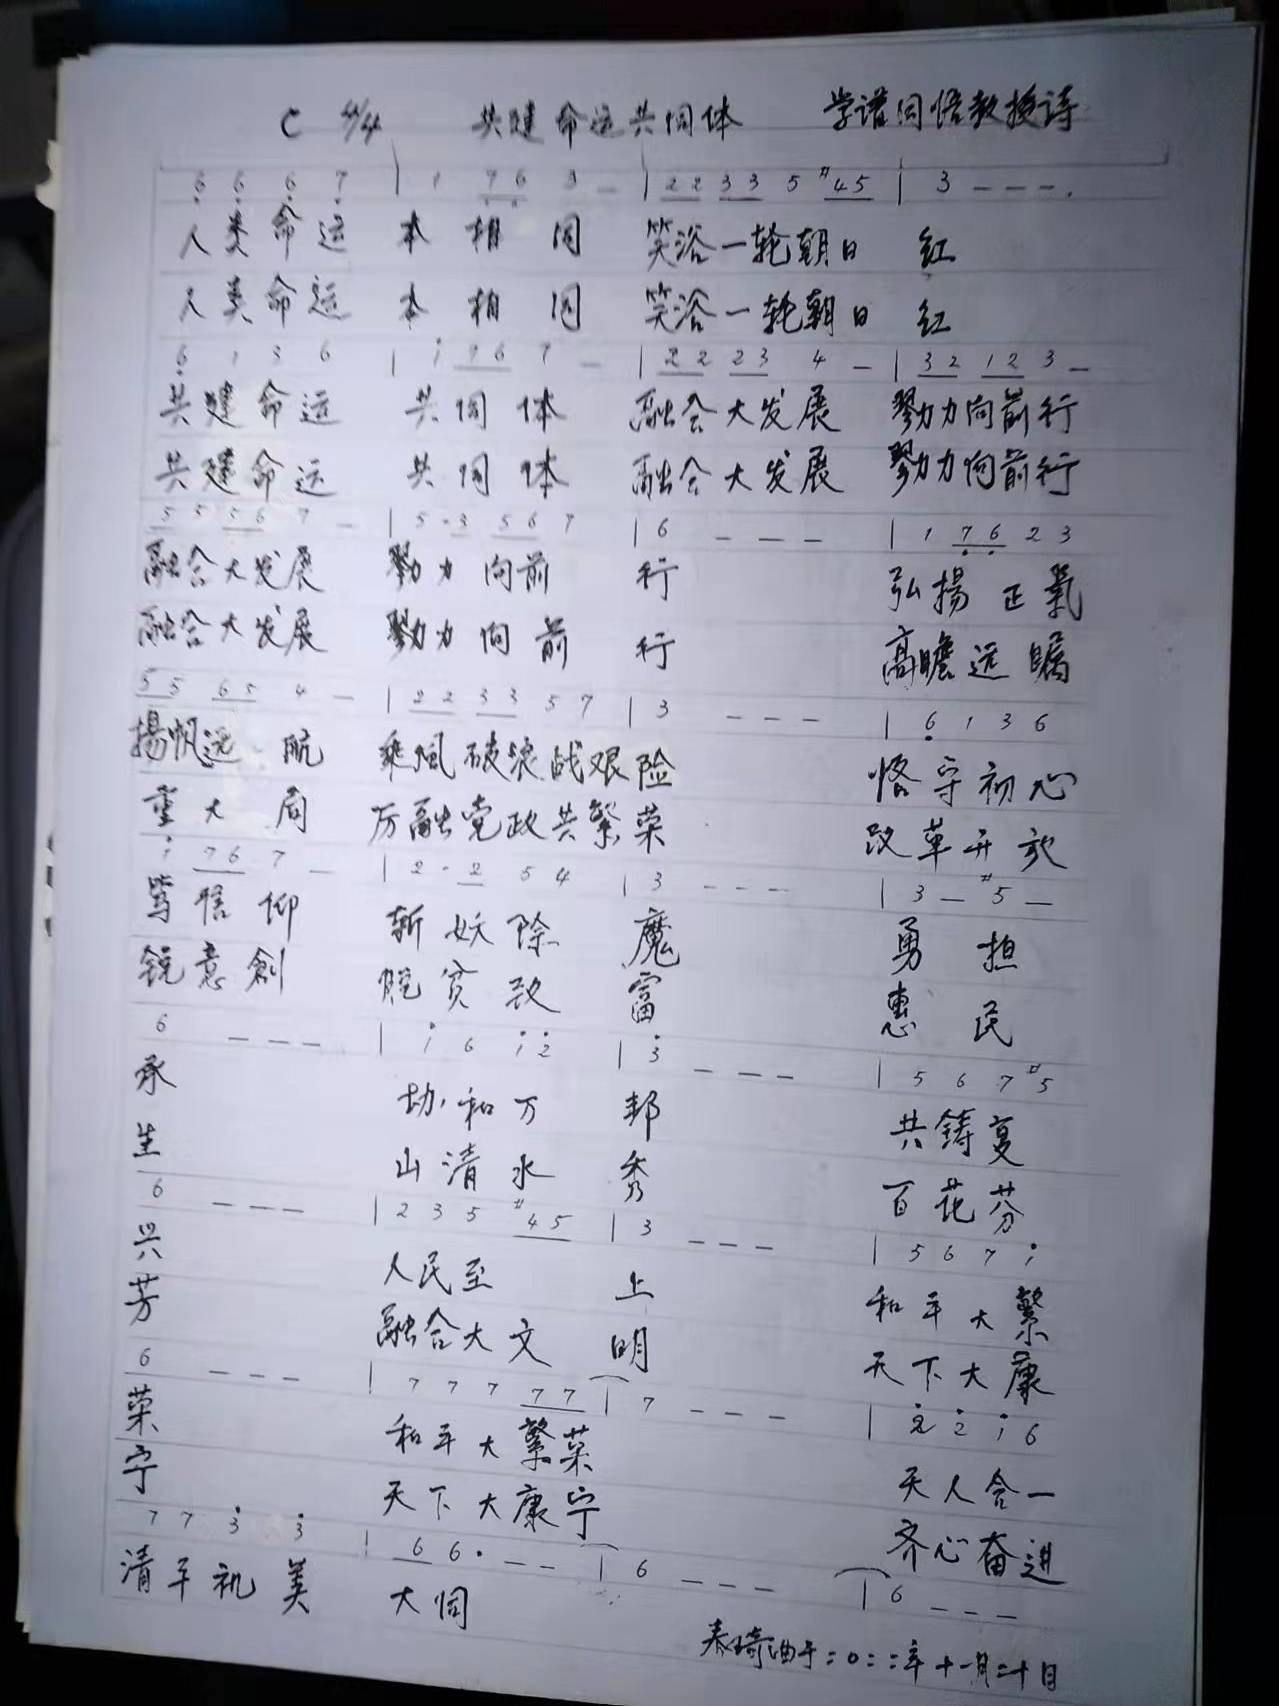 C 4/4 共建命运共同体 学谱同悟教授诗
6 6 6 7 | 1 7 6 3 - | 2 2 3 3 5 #4 5 | 3 - - - .
人类命运 本相同 笑浴一轮朝日 红
人类命运 本相同 笑浴一轮朝日 红
6 1 3 6 | 1 7 6 7 - | 2 2 2 3 4 - | 3 2 1 2 3 -
共建命运 共同体 融合大发展 勠力向前行
共建命运 共同体 融合大发展 勠力向前行
5 5 5 6 7 - | 5 · 3 5 6 7 | 6 - - - | 1 7 6 2 3
融合大发展 勠力向前 行 弘揚正氣
融合大发展 勠力向前 行 高瞻远瞩
5 5 6 5 4 - | 2 2 3 3 5 7 | 3 - - - | 6 1 3 6
揚帆远航 乘風破浪战艰险 恪守初心
重大局 厉融党政共繁荣 改革开放
1 7 6 7 - | 2 · 2 5 4 | 3 - - - | 3 - #5 -
笃信仰 斩妖除 魔 勇担
锐意創 脱贫致 富 惠民
6 - - - | 1 6 1 2 | 3 - - - | 5 6 7 #5
承 协和万 邦 共鋳复
生 山清水 秀 百花芬
6 - - - | 2 3 5 #4 5 | 3 - - - | 5 6 7 1
兴 人民至 上 和平大繁
芳 融合大文 明 天下大康
6 - - - | 7 7 7 7 7 | 7 - - - | 2 2 1 6
荣 和平大繁荣 天人合一
宁 天下大康宁 齐心奋进
7 7 3 3 | 6 6 · - - | 6 - - - | 6 - - -
清平礼美 大同
秦琦曲于二〇二二年十一月二十日